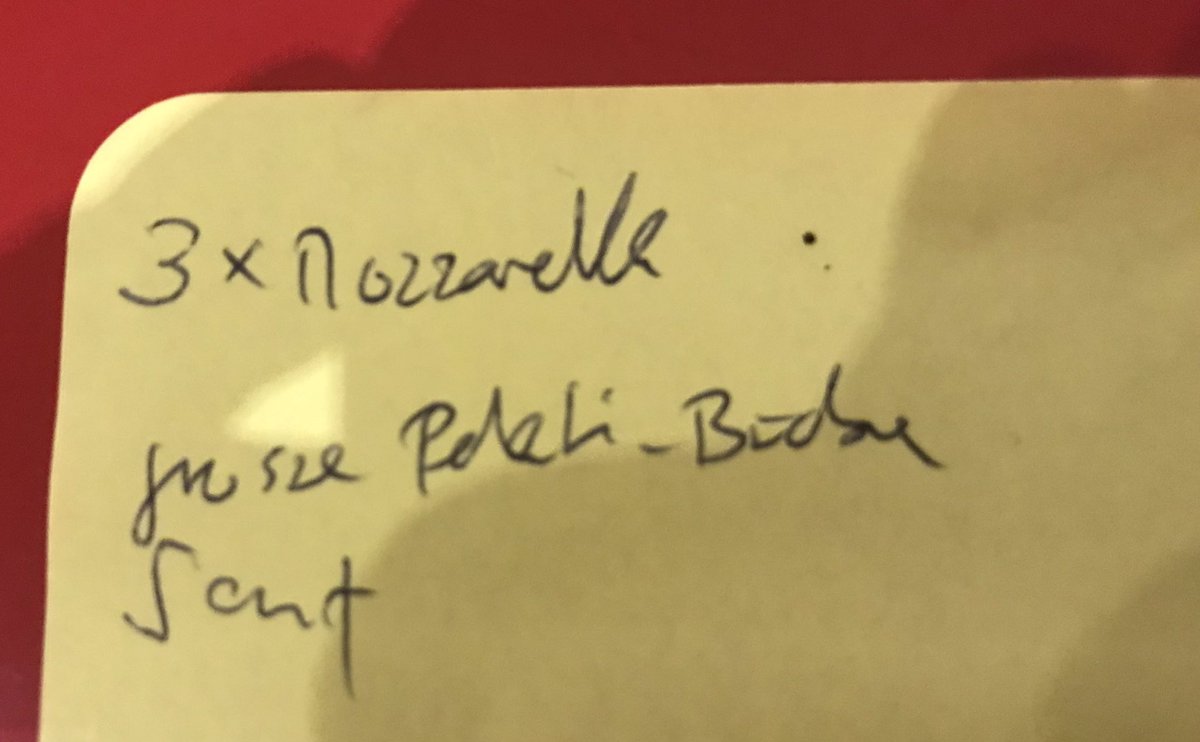 3 x Mozzarella
grosze Pelati-Büchse
Senf